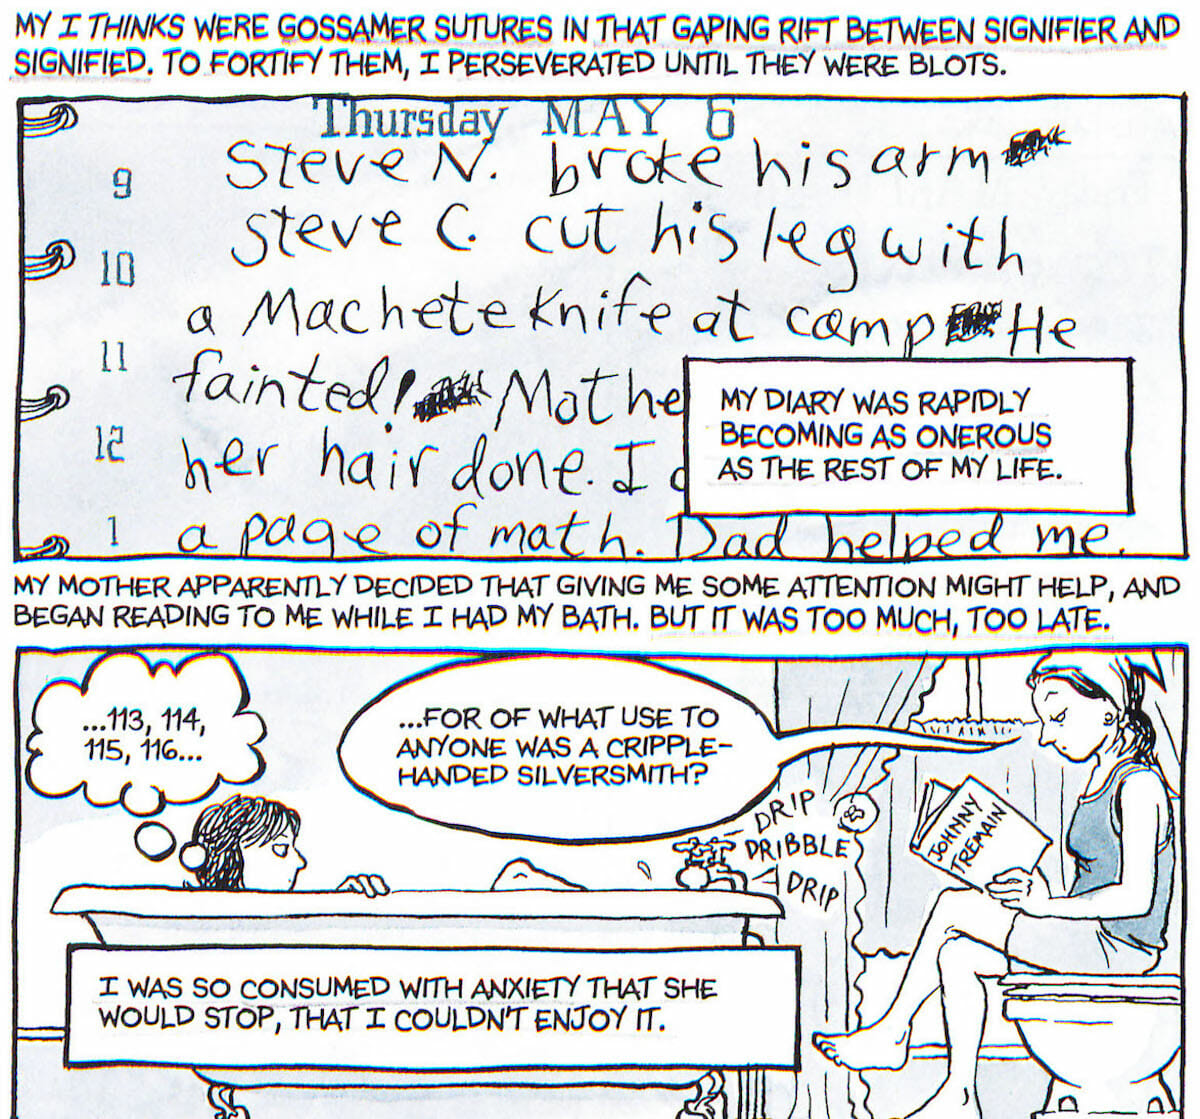 MY I THINKS WERE GOSSAMER SUTURES IN THAT GAPING RIFT BETWEEN SIGNIFIER AND
SIGNIFIED. TO FORTIFY THEM, I PERSEVERATED UNTIL THEY WERE BLOTS.
Thursday MAY 6
9
Steve N. broke his arm
steve C. cut his leg with
10
a Machete knife at camp He
11
fainted! Mothe
12
her hair done. I
1
a page of math. Dad helped me.
MY DIARY WAS RAPIDLY
BECOMING AS ONEROUS
AS THE REST OF MY LIFE.
MY MOTHER APPARENTLY DECIDED THAT GIVING ME SOME ATTENTION MIGHT HELP, AND
BEGAN READING TO ME WHILE I HAD MY BATH. BUT IT WAS TOO MUCH, TOO LATE.
...113, 114,
115, 116...
...FOR OF WHAT USE TO
ANYONE WAS A CRIPPLE-
HANDED SILVERSMITH?
DRIP
DRIBBLE
DRIP
JOHNNY
TREMAIN
I WAS SO CONSUMED WITH ANXIETY THAT SHE
WOULD STOP, THAT I COULDN'T ENJOY IT.